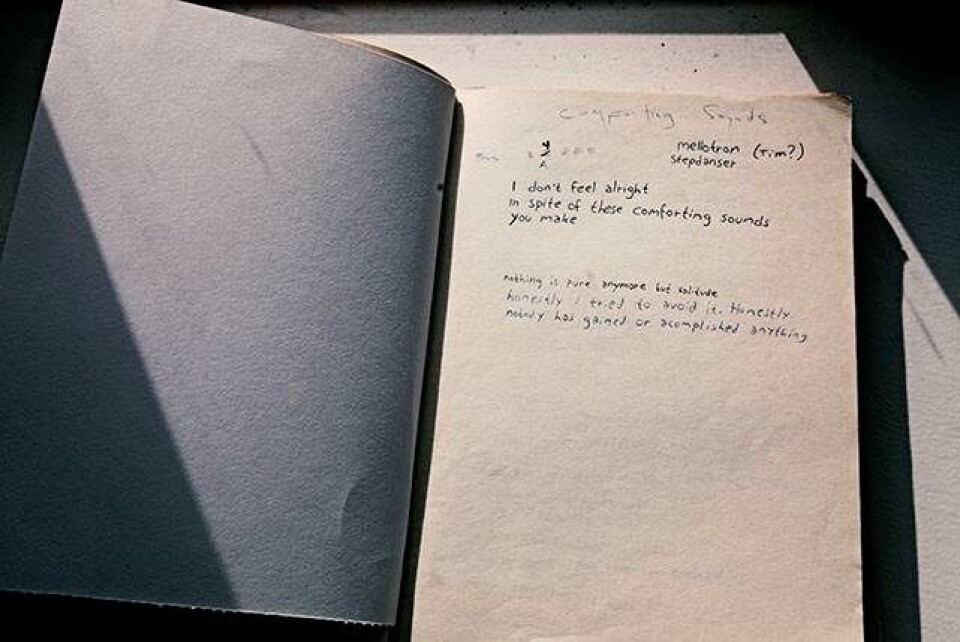 Comforting Sounds
mellotron (Tim?)
Stepdanser
I don't feel alright
In spite of these comforting sounds
you make
nothing is pure anymore but solitude
honestly i tried to avoid it. Honestly.
nobody has gained or acomplished anything